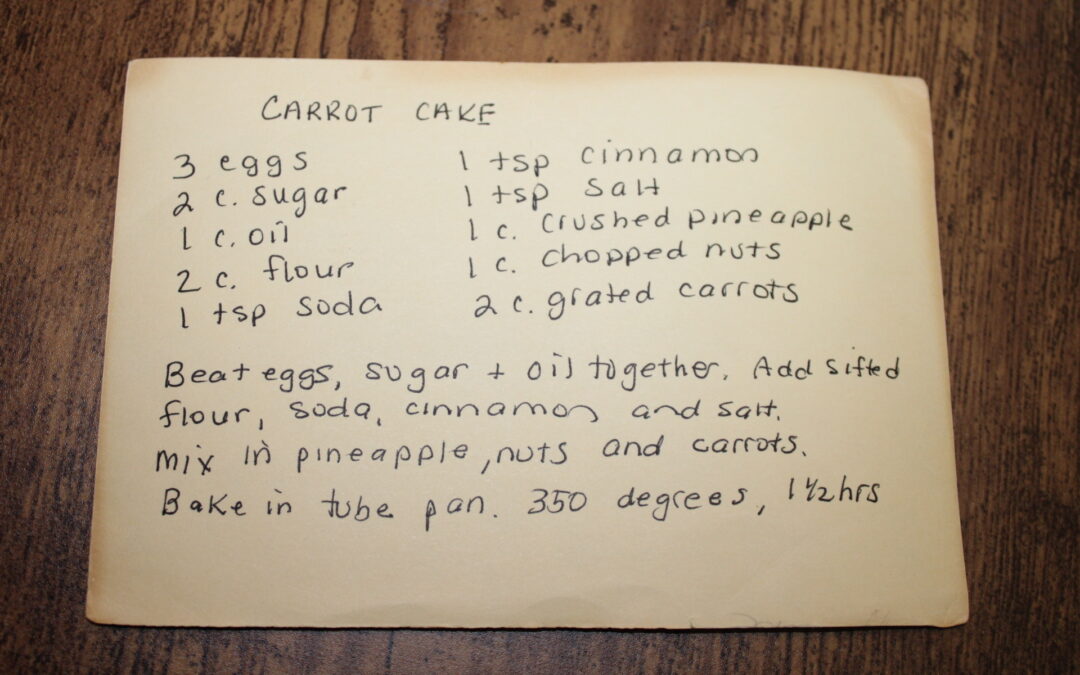 CARROT CAKE
3 eggs
2 c. sugar
1 c. oil
2 c. flour
1 tsp soda
1 tsp cinnamon
1 tsp salt
1 c. crushed pineapple
1 c. chopped nuts
2 c. grated carrots
Beat eggs, sugar + oil together. Add sifted
flour, soda, cinnamon and salt.
Mix in pineapple, nuts and carrots.
Bake in tube pan. 350 degrees, 1 1/2 hrs